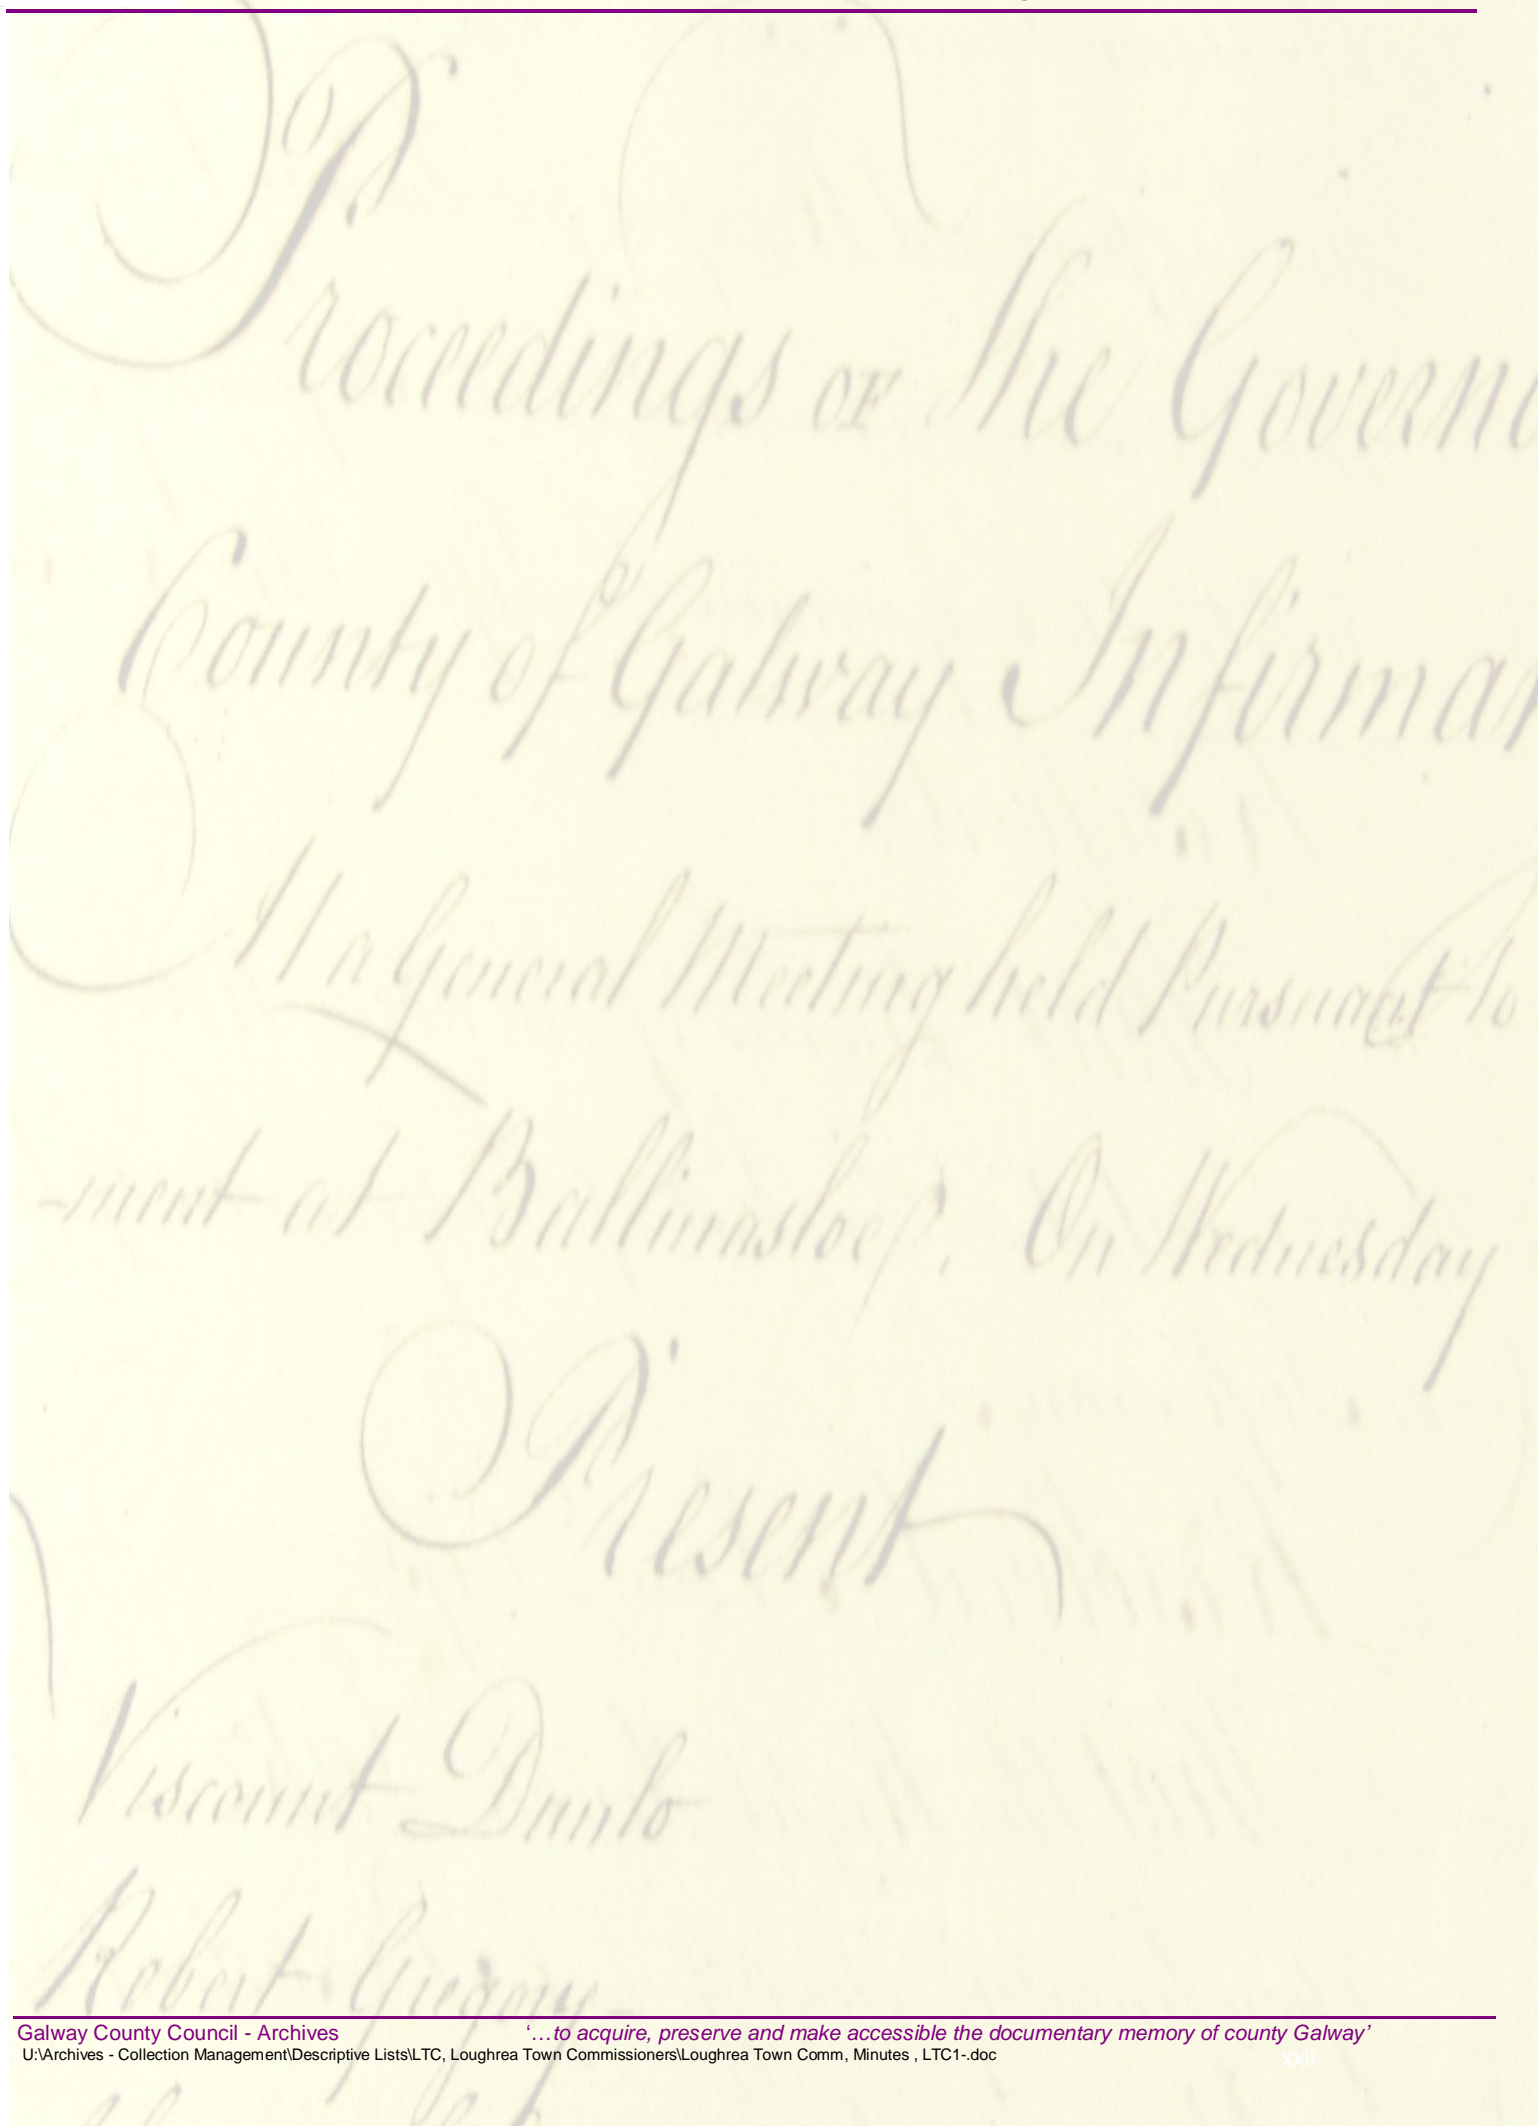 Proceedings OF The Governo
County of Galway Infirmar
At a General Meeting held Pursuant to
-ment at Ballinasloe. On Wednesday
Present
Viscount Dunlo
Robert Gregory
Galway County Council - Archives ‘…to acquire, preserve and make accessible the documentary memory of county Galway’
U:\Archives - Collection Management\Descriptive Lists\LTC, Loughrea Town Commissioners\Loughrea Town Comm, Minutes , LTC1-.doc xxii